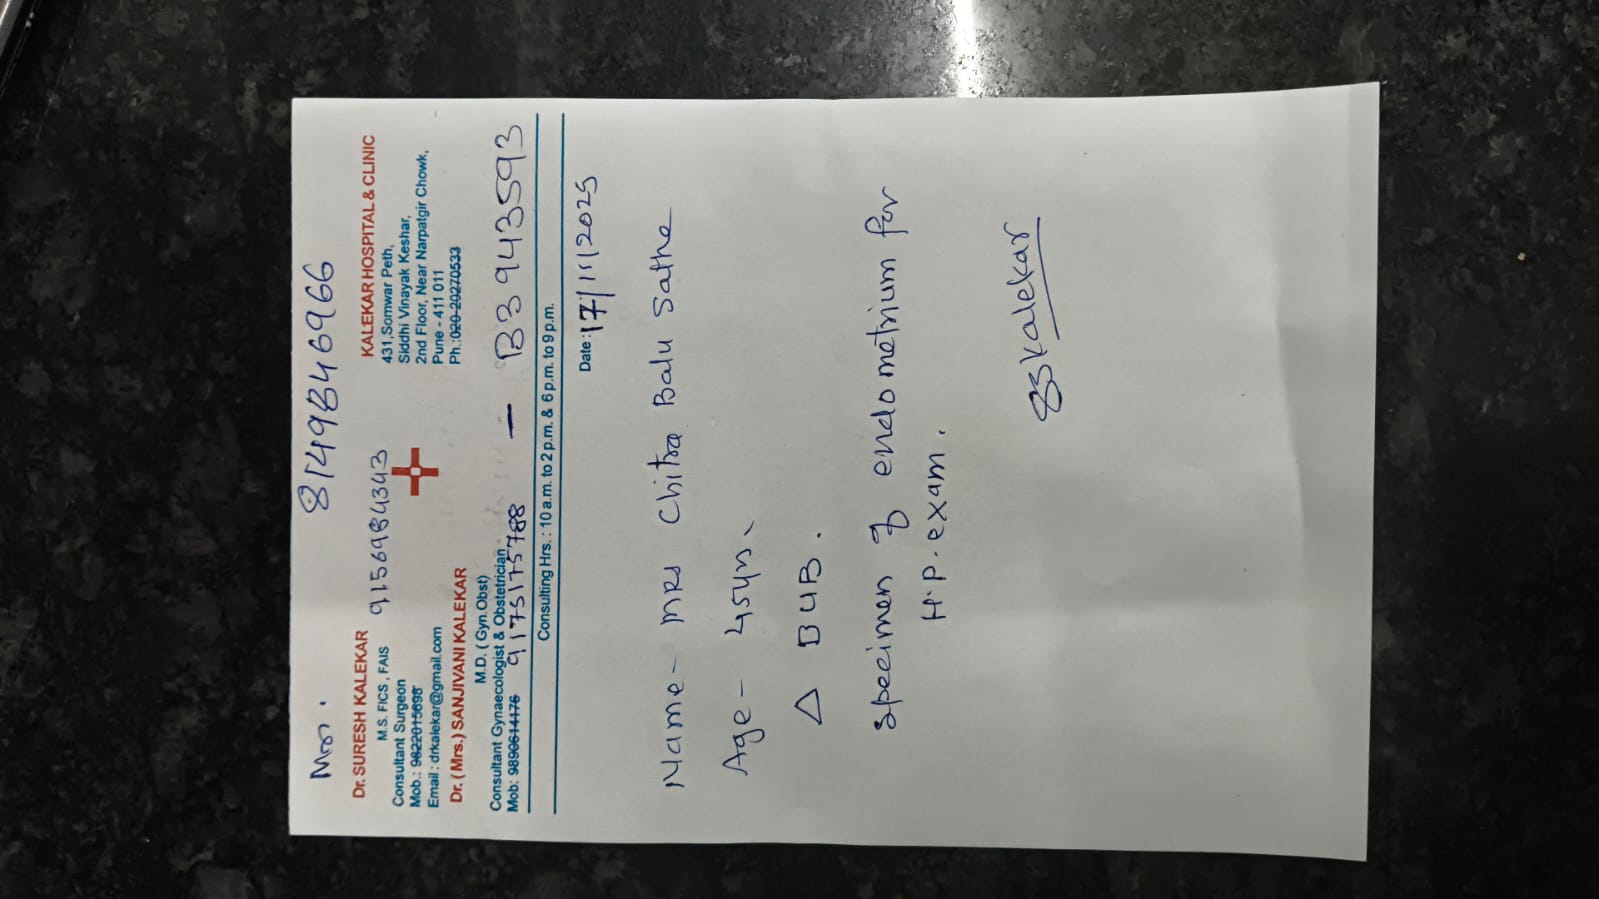 Mrs. 8149846966
Dr. SURESH KALEKAR
M.S. FICS , FAIS 9156984343
Consultant Surgeon
Mob.: 9822015695
Email : drkalekar@gmail.com
Dr. ( Mrs.) SANJIVANI KALEKAR
M.D. ( Gyn.Obst)
Consultant Gynaecologist & Obstetrician
Mob: 9890614176 9175175788 — B3943593
KALEKAR HOSPITAL & CLINIC
431,Somwar Peth,
Siddhi Vinayak Keshar,
2nd Floor, Near Narpatgir Chowk,
Pune - 411 011
Ph.:020-29270533
Consulting Hrs. : 10 a.m. to 2 p.m. & 6 p.m. to 9 p.m.
Date : 17/11/2025
Name - MRS Chitra Balu Sathe
Age - 45yrs.
△ DUB.
Specimen of endometrium for
H.P. exam.
SSKalekar